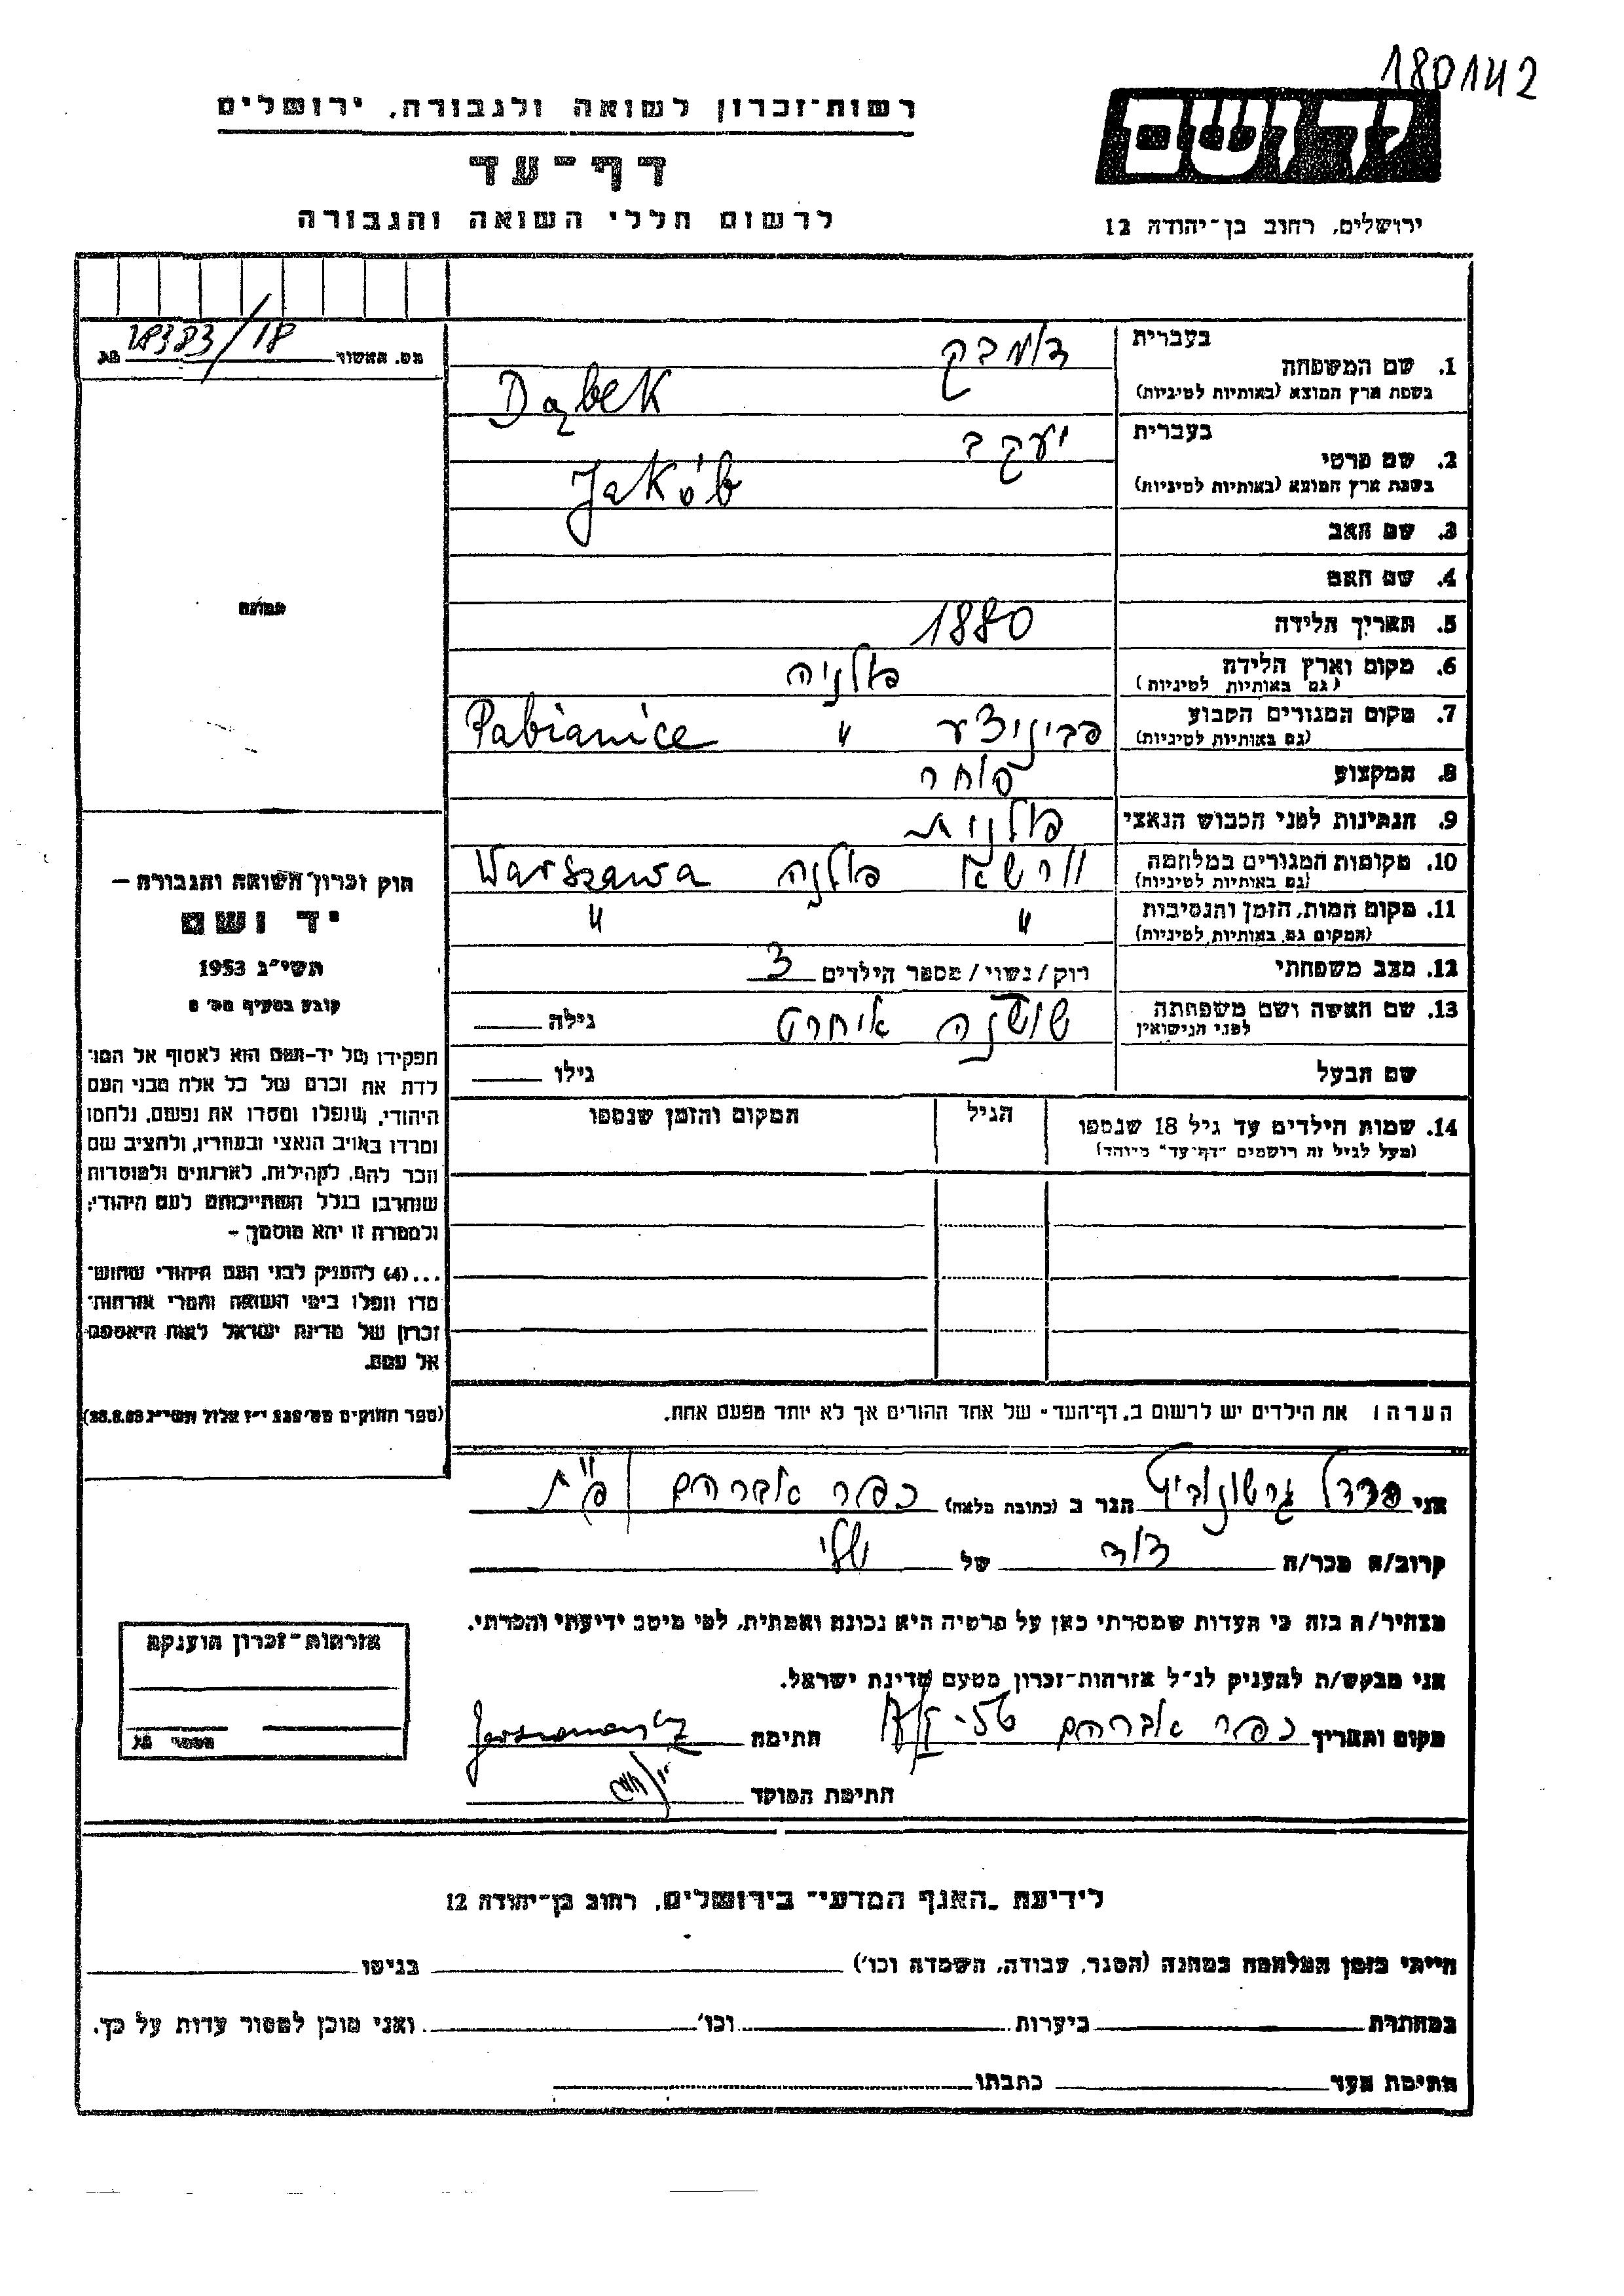 180142
רשות-זכרון לשואה ולגבורה, ירושלים
יד ושם
דף-עד
לרשום חללי השואה והגבורה
ירושלים, רחוב בן-יהודה 12
מס. האשור 18383/18
בעברית דומבק
1. שם המשפחה
בשפת ארץ המוצא (באותיות לטיניות) Dąbek
בעברית יעקב
2. שם פרטי
בשפת ארץ המוצא (באותיות לטיניות) Jakób
3. שם האב
4. שם האם
5. תאריך הלידה 1880
6. מקום וארץ הלידה פולניה
(גם באותיות לטיניות)
7. מקום המגורים הקבוע פביניצע " Pabianice
(גם באותיות לטיניות)
8. המקצוע סוחר
9. הנתינות לפני הכבוש הנאצי פולנית
10. מקומות המגורים במלחמה וורשא פולניה Warszawa
(גם באותיות לטיניות)
11. מקום המות, הזמן והנסיבות " "
(המקום גם באותיות לטיניות)
12. מצב משפחתי רוק/נשוי/מספר הילדים 3
13. שם האשה ושם משפחתה שושנה גילה
לפני הנישואין
שם הבעל גילו
14. שמות הילדים עד גיל 18 שנספו הגיל המקום והזמן שנספו
(מעל לגיל זה רושמים "דף-עד" מיוחד)
הערה: את הילדים יש לרשום ב"דף-העד" של אחד ההורים אך לא יותר מפעם אחת.
תמונה
חוק זכרון השואה והגבורה –
יד ושם
תשי"ג 1953
קובע בסעיף מס' 2
תפקידו של יד-ושם הוא לאסוף אל המו-
לדת את זכרם של כל אלה מבני העם
היהודי, שנפלו ומסרו את נפשם, נלחמו
ומרדו באויב הנאצי ובעוזריו, ולהציב שם
וזכר להם, לקהילות, לארגונים ולמוסדות
שנחרבו בגלל השתייכותם לעם היהודי;
ולמטרה זו יהא מוסמך –
...(4) להעניק לבני העם היהודי שהוש-
מדו ונפלו בימי השואה והמרי אזרחות-
זכרון של מדינת ישראל לאות היאספם
אל עמם.
(ספר החוקים מס' 132 י"ז אלול תשי"ג 28.8.53)
אני פרדל גרשונוביץ הגר ב (כתובת מלאה) כפר אברהם פ"ת
קרוב/ה מכר/ה דוד של שלי
מצהיר/ה בזה כי העדות שמסרתי כאן על פרטיה היא נכונה ואמתית, לפי מיטב ידיעתי והכרתי.
אני מבקש/ת להעניק לנ"ל אזרחות-זכרון מטעם מדינת ישראל.
מקום ותאריך כפר אברהם חתימה
חתימת הפוקד
אזרחות-זכרון הוענקה
לידיעת "האגף המדעי" בירושלים, רחוב בן-יהודה 12
הייתי בזמן המלחמה במחנה (הסגר, עבודה, השמדה וכו') בגיטו
במחתרת ביערות וכו' ואני מוכן למסור עדות על כך.
חתימת העד כתבתו